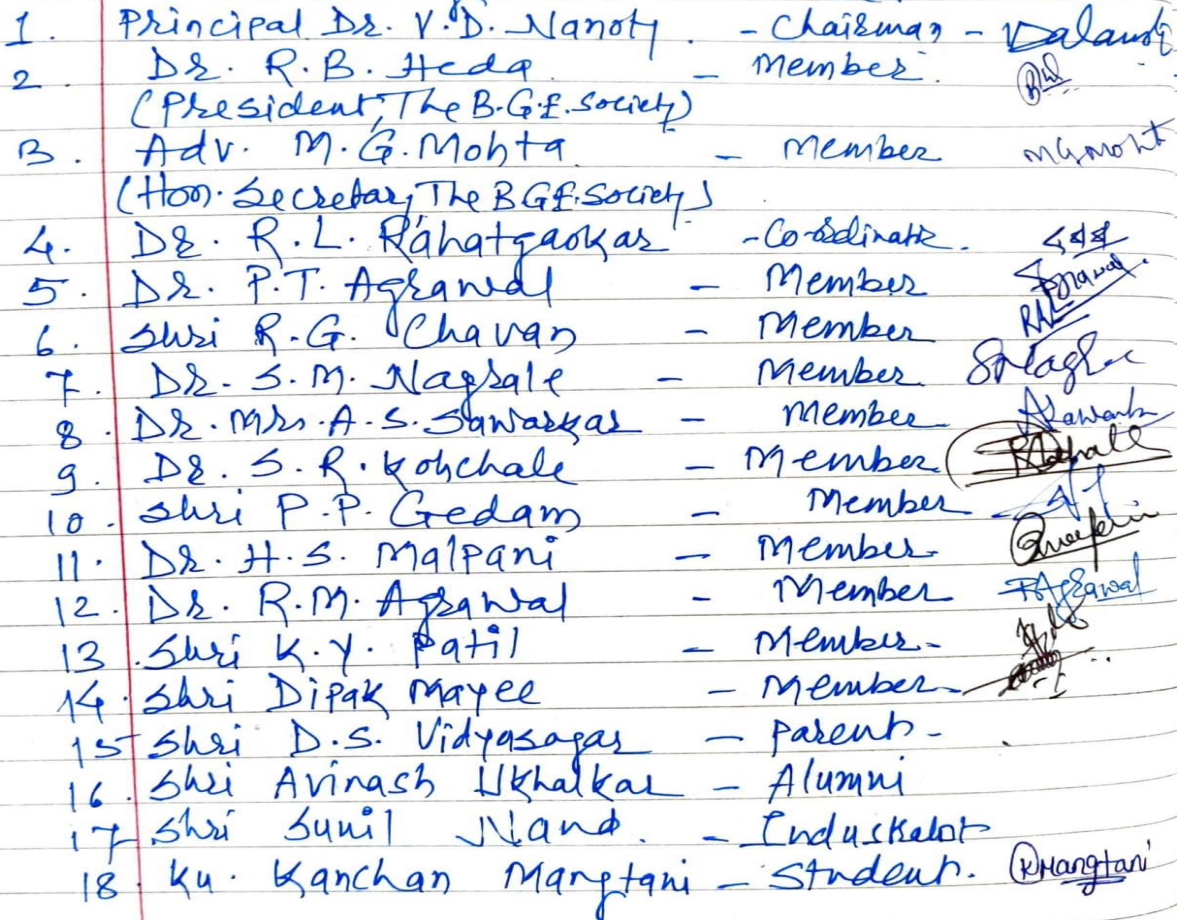 1. Principal Dr. V.D. Nanoty. - Chairman -
2. Dr. R.B. Heda. - Member.
(President, The B.G.E. Society)
3. Adv. M.G. Mohta - Member mgmoht
(Hon. Secretary, The BGE Society)
4. Dr. R.L. Rahatgaokar - Co-ordinator.
5. Dr. P.T. Agrawal - Member
6. Shri R.G. Chavan - Member
7. Dr. S.M. Nagrale - Member
8. Dr. Mrs. A.S. Sawarkar - Member
9. Dr. S.R. Kohchale - Member
10. Shri P.P. Gedam - Member
11. Dr. H.S. Malpani - Member
12. Dr. R.M. Agrawal - Member RAgrawal
13. Shri K.Y. Patil - Member -
14. Shri Dipak Mayee - Member -
15 Shri D.S. Vidyasagar - Parent -
16. Shri Avinash Ukhalkar - Alumni
17 Shri Sunil Nand. -
18 Ku. Kanchan Mangtani - Student. KMangtani